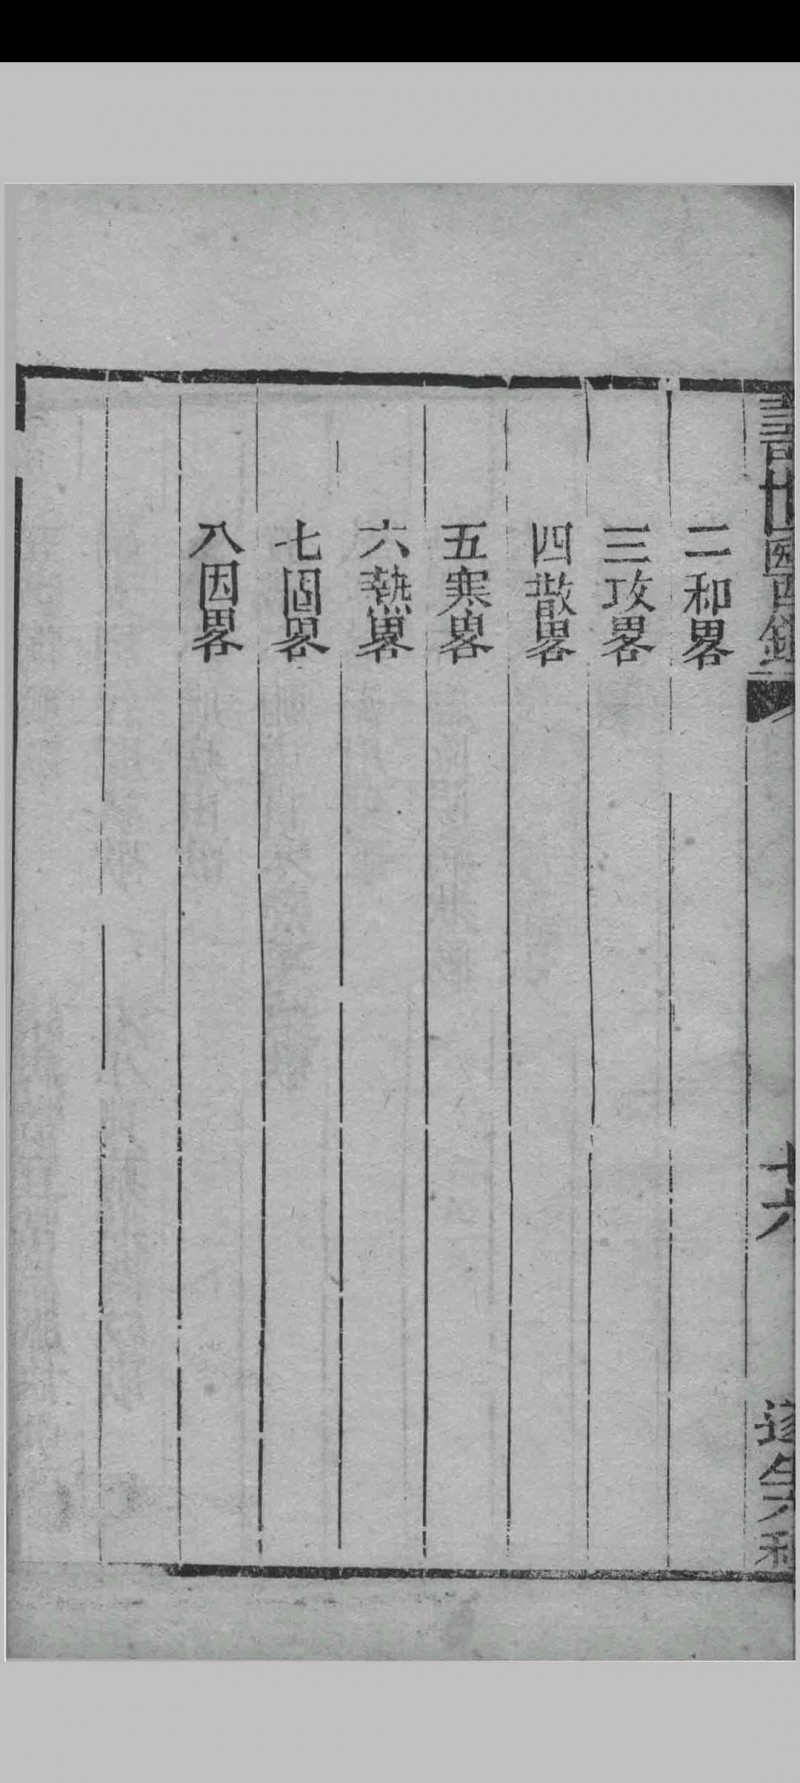 世醫鑑
二和畧
三攻畧
四散畧
五寒畧
六熱畧
七固畧
八因畧